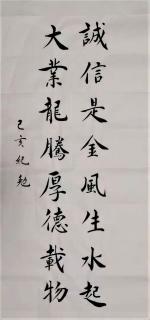 誠信是金風生水起
大業龍騰厚德載物
己亥纪勉